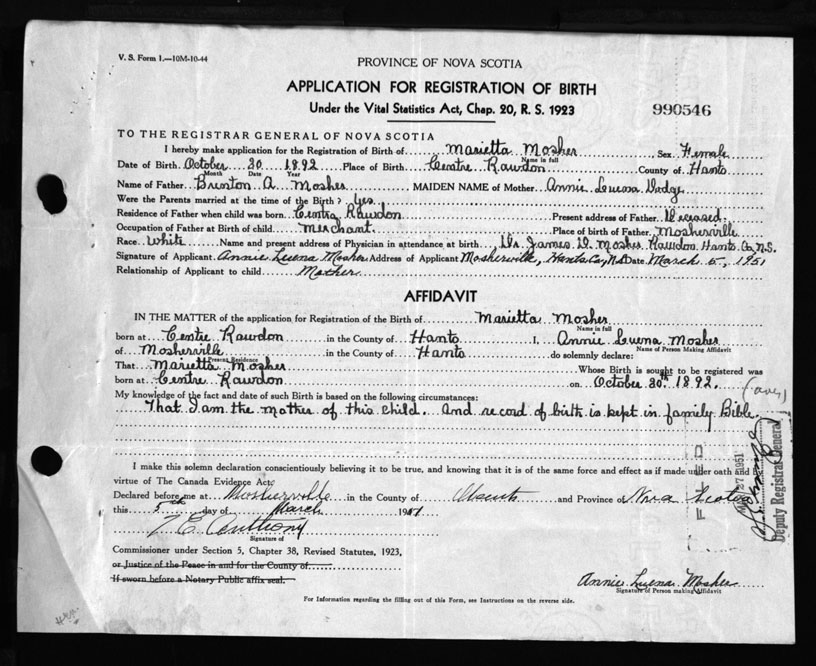 V. S. Form 1.—10M-10-44
PROVINCE OF NOVA SCOTIA
APPLICATION FOR REGISTRATION OF BIRTH
Under the Vital Statistics Act, Chap. 20, R. S. 1923
990546
TO THE REGISTRAR GENERAL OF NOVA SCOTIA
I hereby make application for the Registration of Birth of Marietta Mosher Sex Female
Name in full
Date of Birth October 30 1892 Place of Birth Centre Rawdon County of Hants
Month Date Year
Name of Father Burton A. Mosher MAIDEN NAME of Mother Annie Luena Dodge
Were the Parents married at the time of the Birth? Yes.
Residence of Father when child was born Centre Rawdon Present address of Father Deceased.
Occupation of Father at Birth of child Merchant. Place of birth of Father Mosherville
Race White Name and present address of Physician in attendance at birth Dr. James D. Mosher Rawdon Hants Co N.S.
Signature of Applicant Annie Luena Mosher Address of Applicant Mosherville, Hants Co, NS Date March 5, 1951
Relationship of Applicant to child Mother
AFFIDAVIT
IN THE MATTER of the application for Registration of the Birth of Marietta Mosher
Name in full
born at Centre Rawdon in the County of Hants I, Annie Luena Mosher
Name of Person Making Affidavit
of Mosherville in the County of Hants do solemnly declare:
Present Residence
That Marietta Mosher Whose Birth is sought to be registered was
born at Centre Rawdon on October 30th 1892.
(over)
My knowledge of the fact and date of such Birth is based on the following circumstances:
That I am the mother of this child. And record of birth is kept in family Bible.
I make this solemn declaration conscientiously believing it to be true, and knowing that it is of the same force and effect as if made under oath and by
virtue of The Canada Evidence Act.
Declared before me at Mosherville in the County of Hants and Province of Nova Scotia
this 5th day of March 1951
Anthony
Signature of
Commissioner under Section 5, Chapter 38, Revised Statutes, 1923,
or Justice of the Peace in and for the County of
If sworn before a Notary Public affix seal.
Annie Luena Mosher
Signature of Person making Affidavit
For Information regarding the filling out of this Form, see Instructions on the reverse side.
FILED
27 1951
Deputy Registrar General